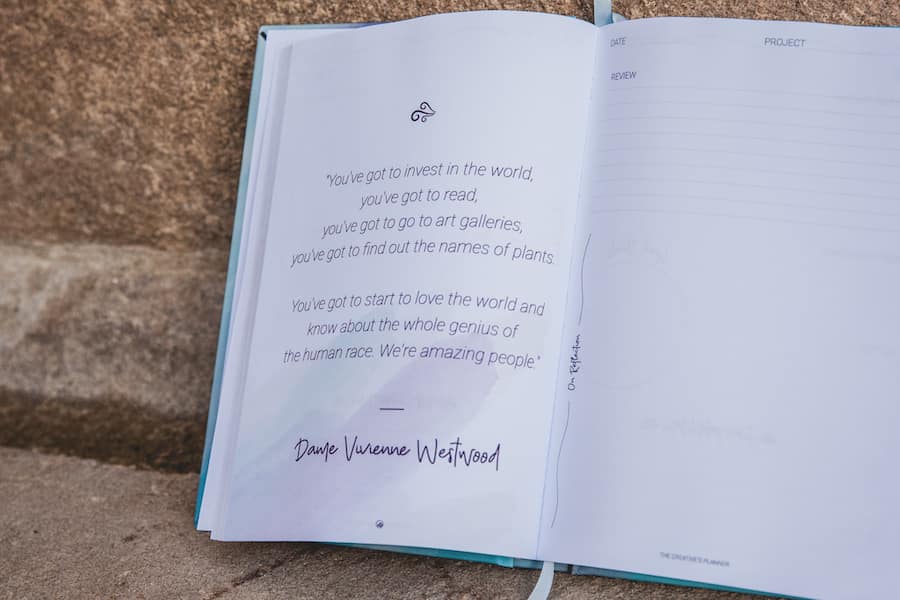 "You've got to invest in the world,
you've got to read,
you've got to go to art galleries,
you've got to find out the names of plants.
You've got to start to love the world and
know about the whole genius of
the human race. We're amazing people."
Dame Vivienne Westwood
DATE
PROJECT
REVIEW
On Reflection
THE CREATIVE'S PLANNER